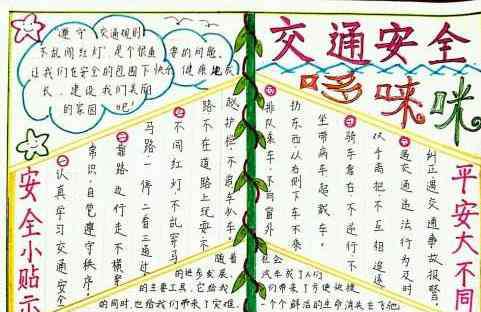 交通安全
哆唻咪
遵守交通规则
不乱闯红灯,是个很重要的问题,
让我们在安全的包围下快乐健康地成
长,建设我们美丽
的家园吧!
安全小贴示
㈠认真学习交通安全
常识,自觉遵守秩序。
㈡靠路边行走不横穿
马路,一停二看三通过。
㈢不闯红灯不乱穿马
路不在道路上玩耍不
跋护栏不追车扒车。
㈣排队乘车,不向窗外
扔东西从右侧下车不乘
坐带病车超载车。
㈤骑车靠右不逆行不
双手离把不互相追逐
㈥遇交通违法行为及时
纠正遇交通事故报警。
平安大不同
随着社会
的进步发展,汽车成了人们
的主要工具,它给我们带来了方便快捷
的同时,也给我们带来了灾难,一个个鲜活的生命消失在飞